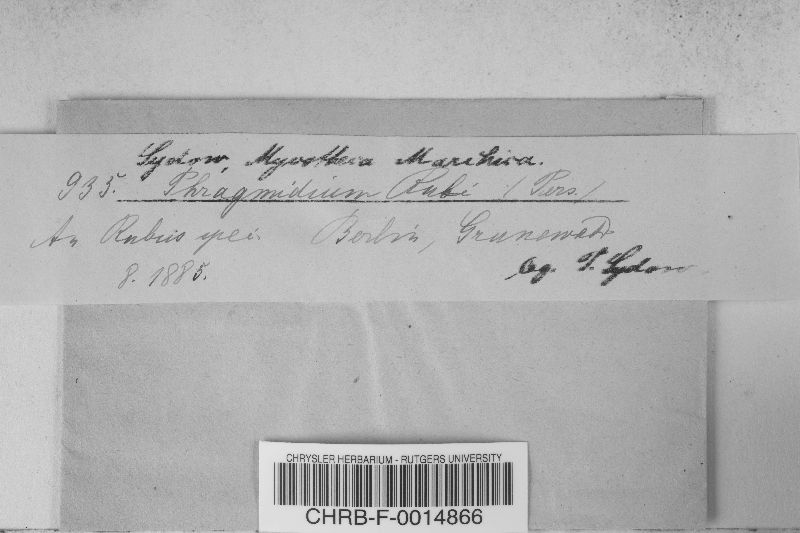 Sydow, Mycotheca Marchica.
935. Phragmidium Rubi (Pers.)
An Rubus spec. Berlin, Grunewald
8. 1885. leg. P. Sydow.
CHRYSLER HERBARIUM - RUTGERS UNIVERSITY
CHRB-F-0014866